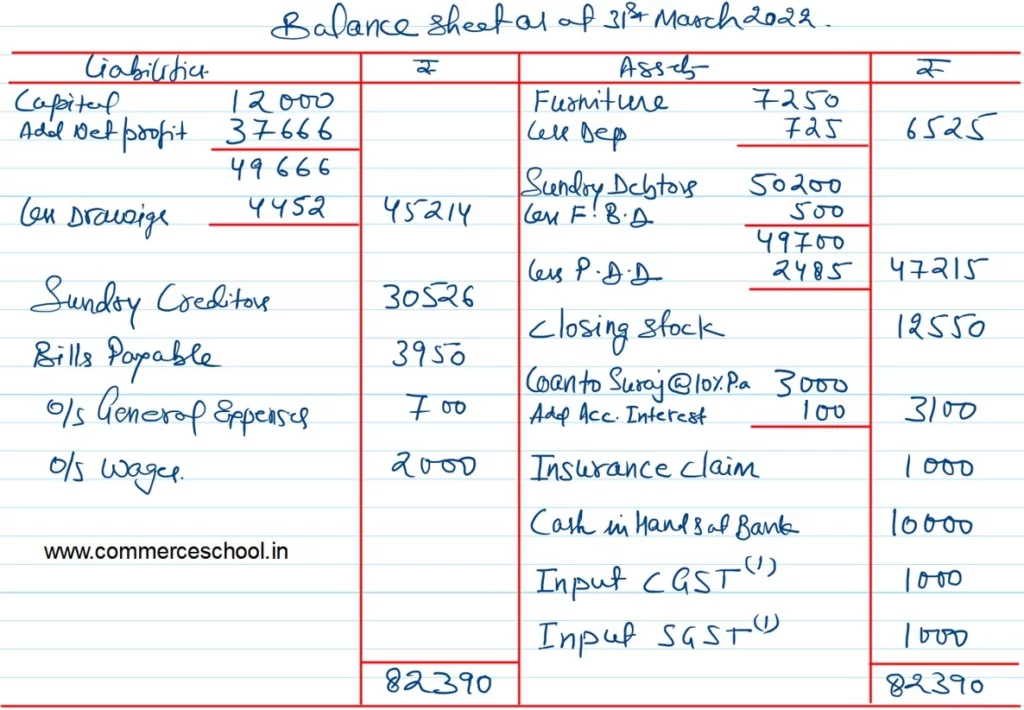 Balance sheet as at 31st March 2022.
Liabilities ₹ Assets ₹
Capital 12000 Furniture 7250
Add Net profit 37666 Less Dep 725 6525
49666
Sundry Debtors 50200
Less Drawigs 4452 45214 Less F.B.D 500
49700
Less P.D.D 2485 47215
Sundry Creditors 30526
Closing stock 12550
Bills Payable 3950
Loan to Suraj @10% P.a 3000
O/s General Expenses 700 Add Acc. Interest 100 3100
O/s wages. 2000 Insurance claim 1000
Cash in Hand & at Bank 10000
www.commerceschool.in
Input CGST(1) 1000
Input SGST(1) 1000
82390 82390